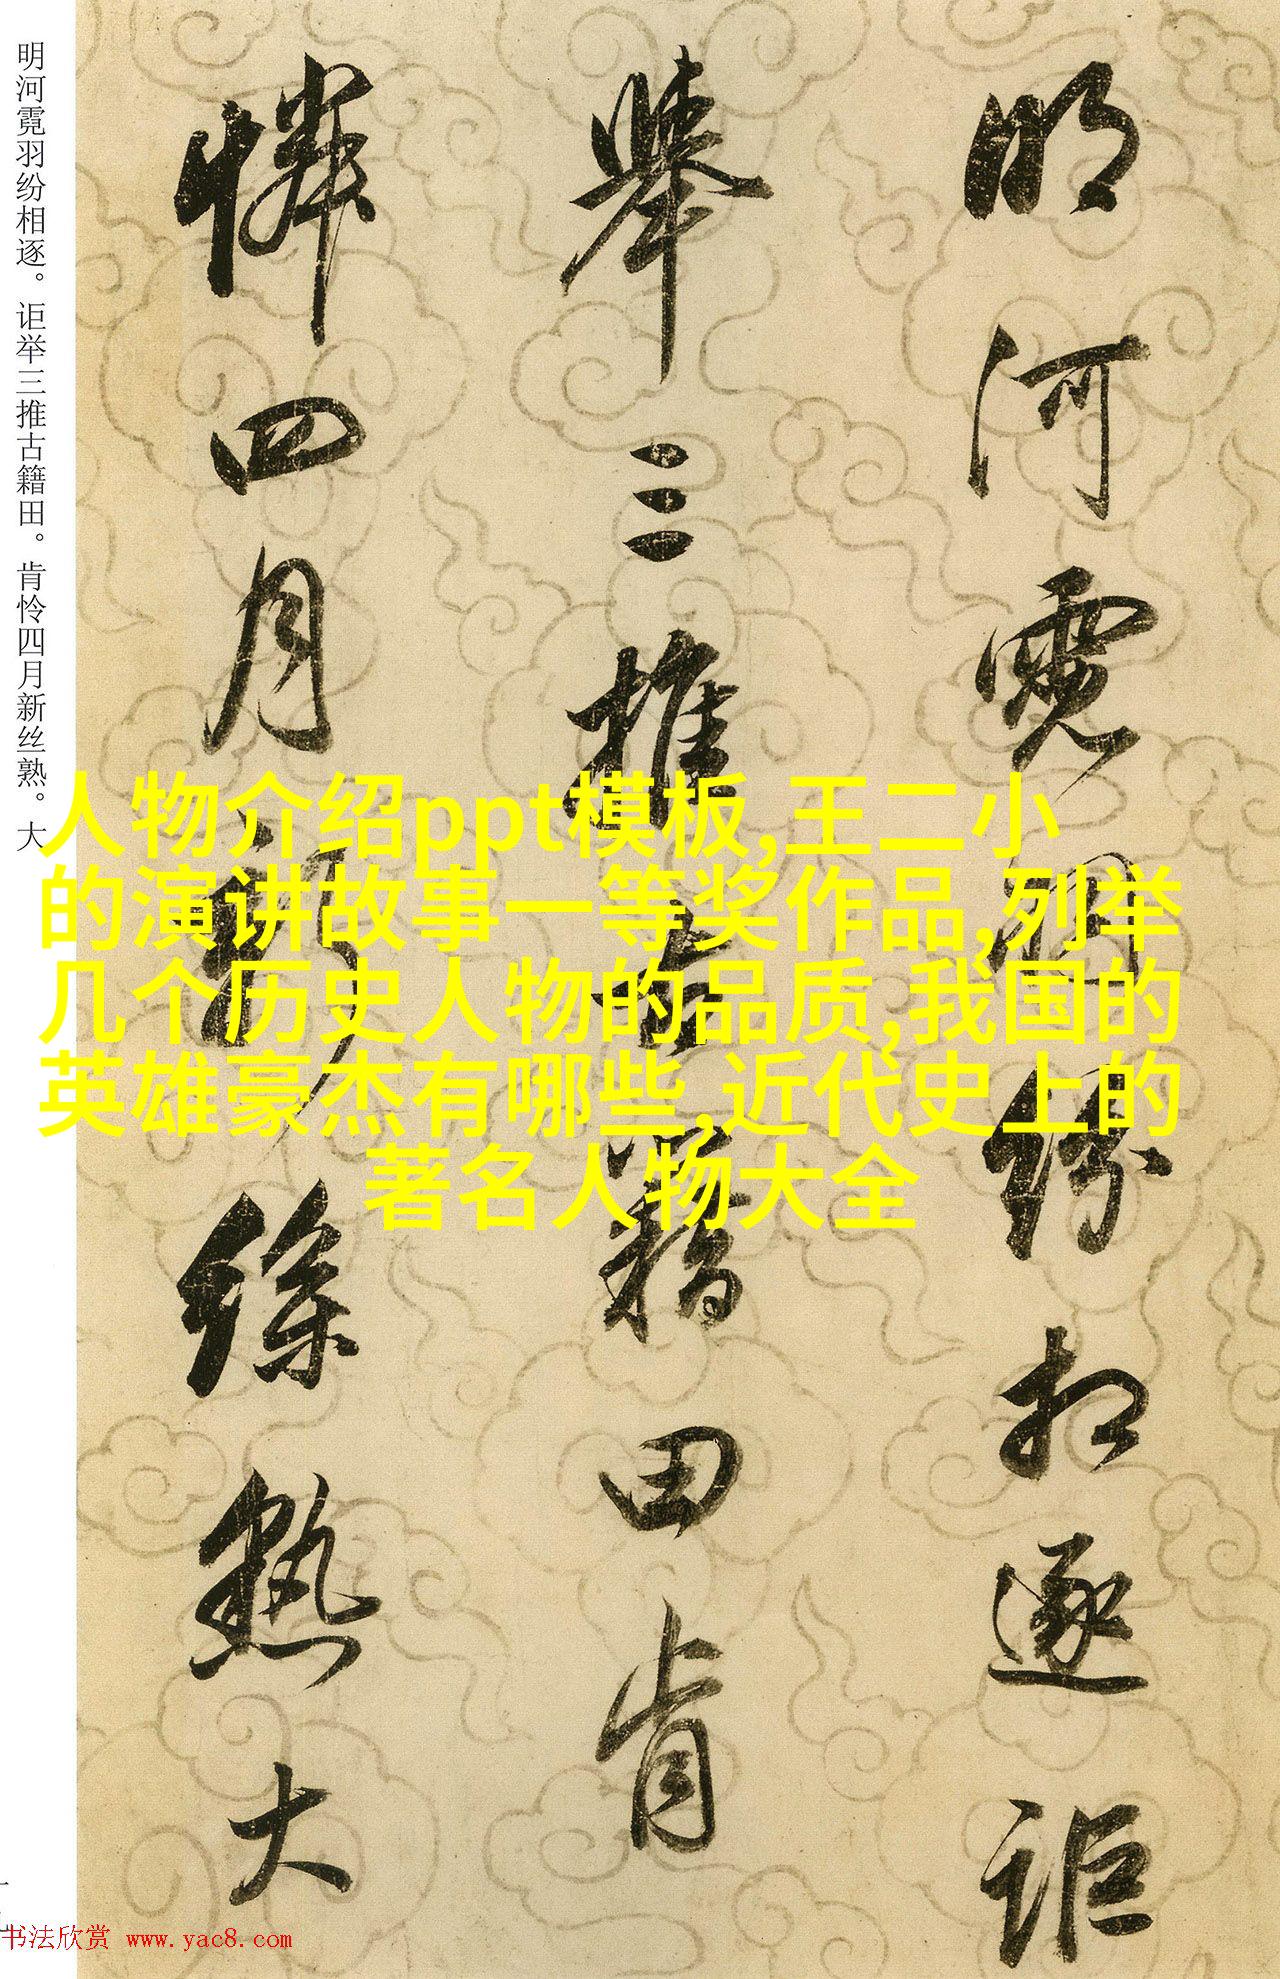 明河霓羽紛相逐詎
舉三推古籍田肯
憐四月新絲熟大
明河霓羽纷相逐。讵举三推古籍田。肯怜四月新丝熟。大
人物介绍ppt模板,王二小
的演讲故事一等奖作品,列举
几个历史人物的品质,我国的
英雄豪杰有哪些,近代史上的
著名人物大全
书法欣赏 www.yac8.com